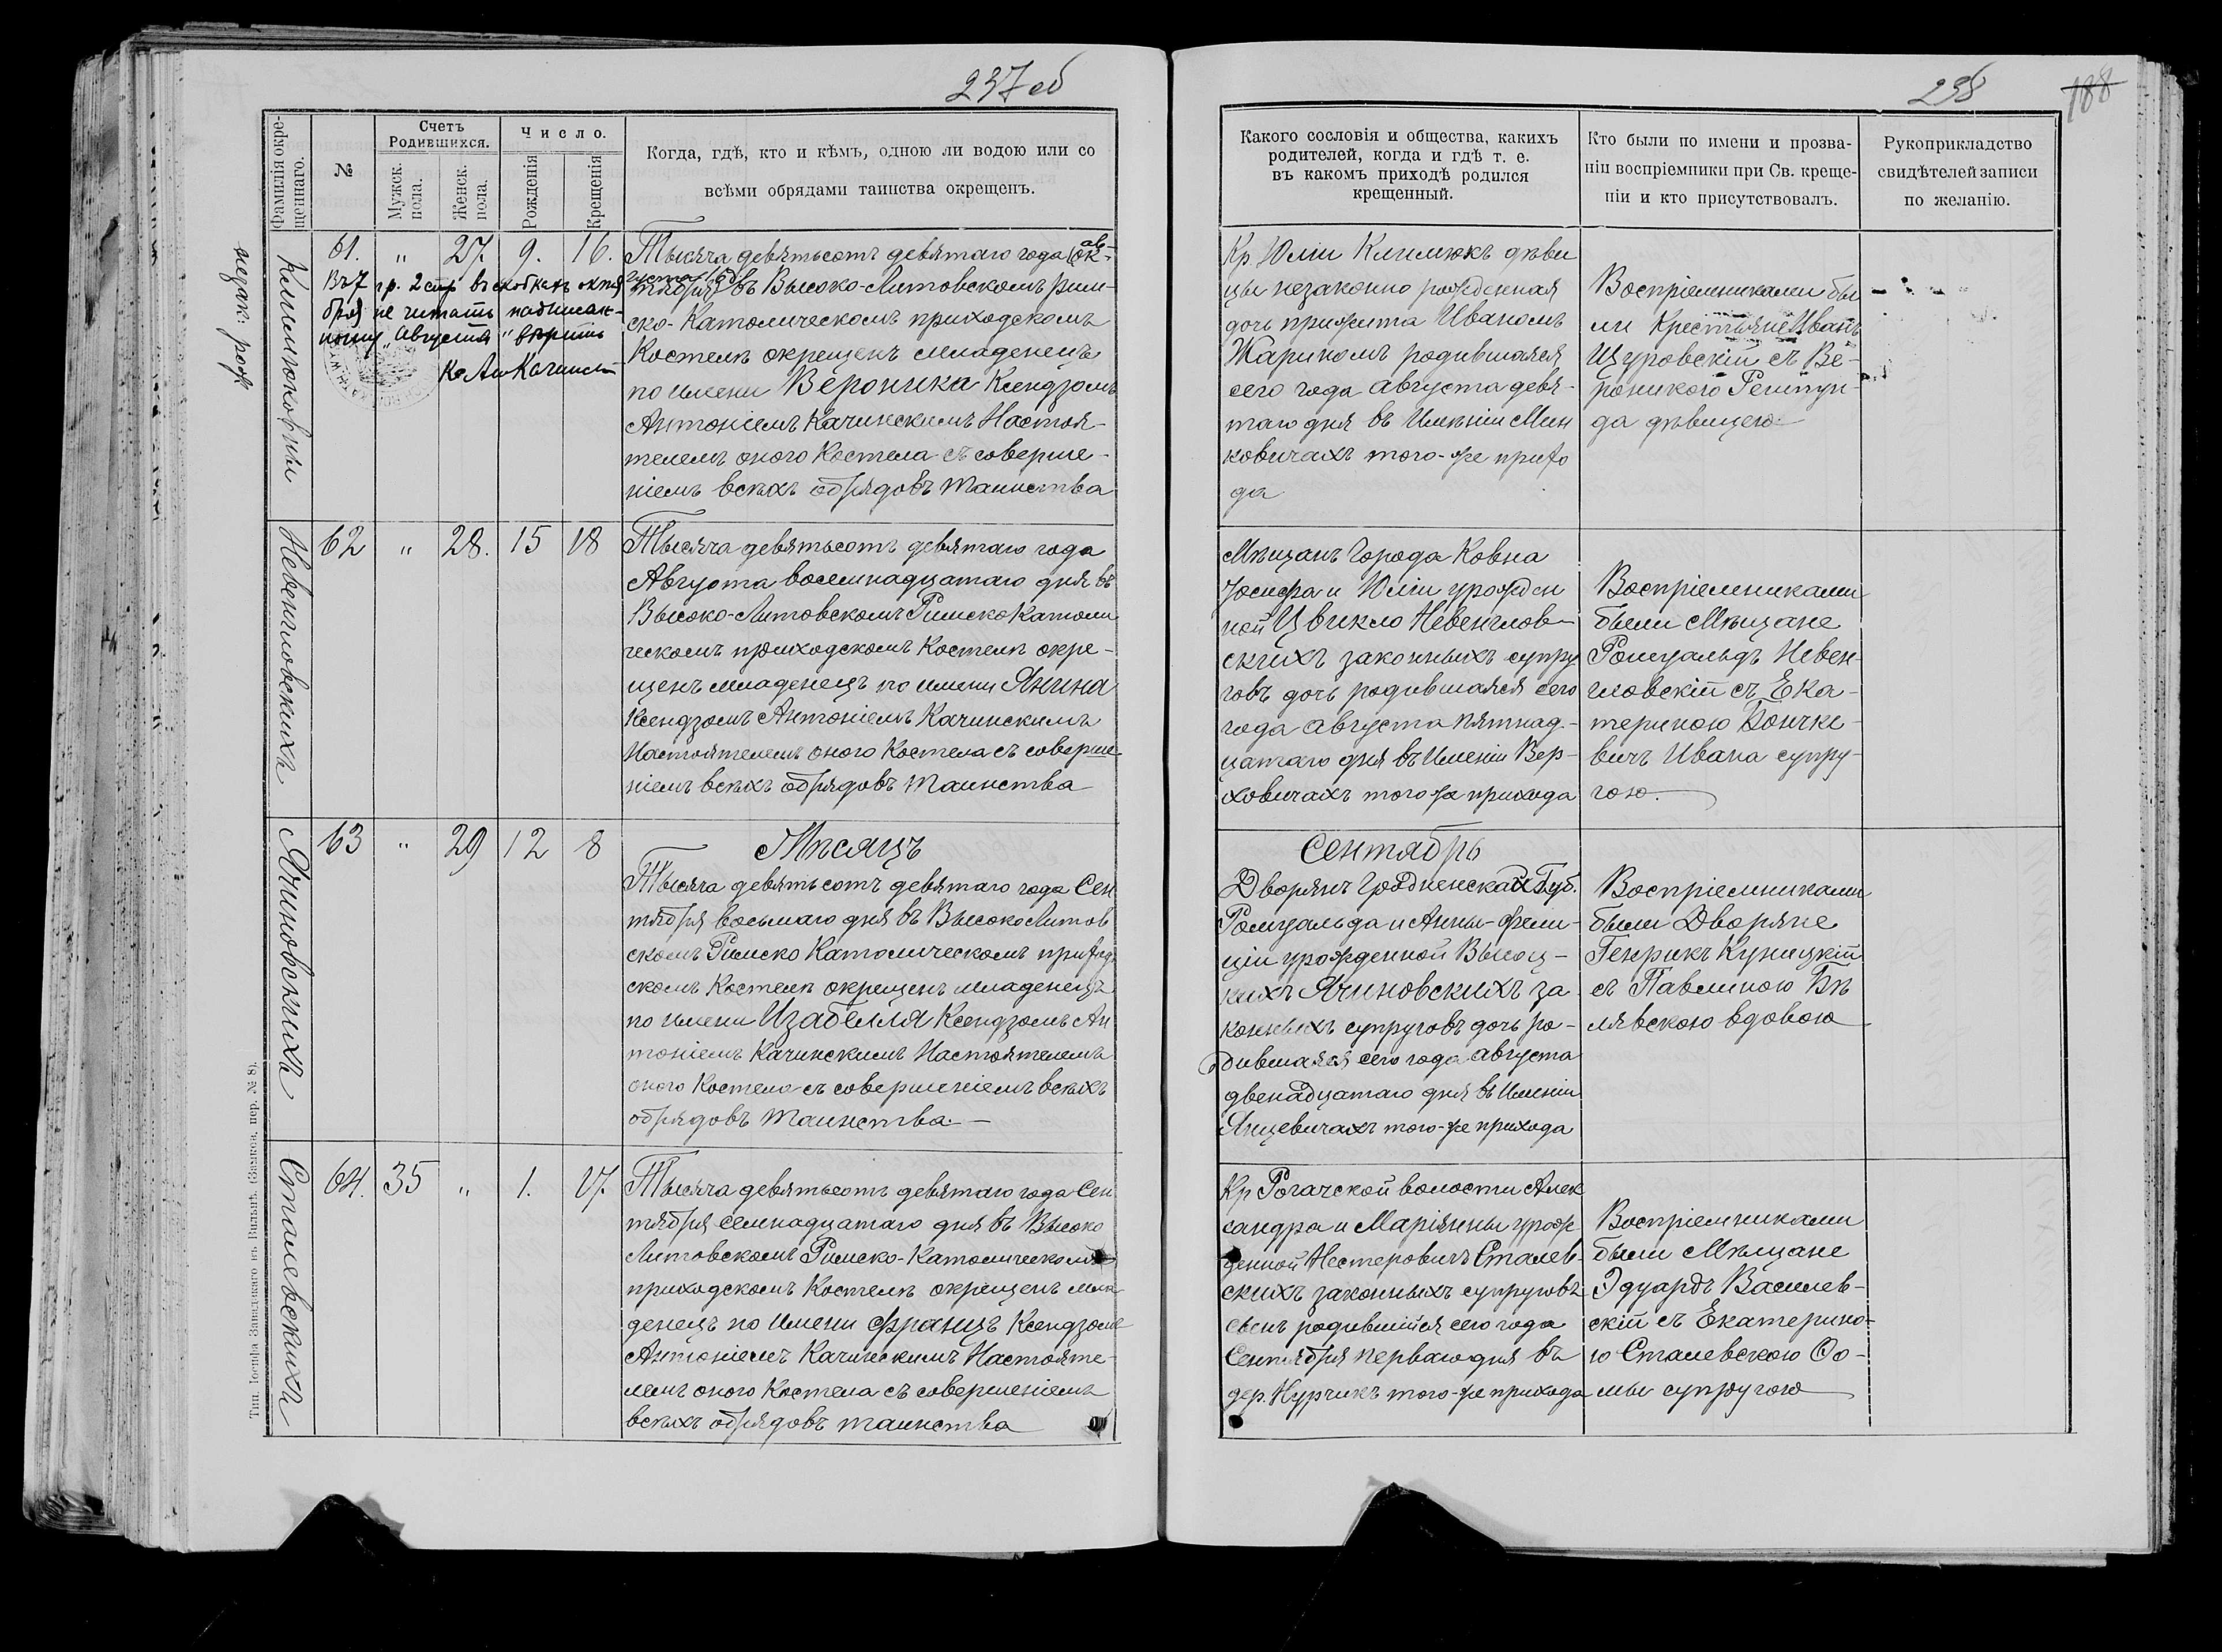 237 об
Фамилія окре-
щеннаго.
№
Счетъ
Родившихся.
Мужск.
пола.
Женск.
пола.
Число.
Рожденія
Крещенія
Когда, гдѣ, кто и кѣмъ, одною ли водою или со
всѣми обрядами таинства окрещенъ.
незак: рож
61. " 27. 9. 16.
Въ 7 гр. 2 стр въ скобкахъ октя
бря не читать надписан-
ному "Августа" вѣрить
Тысяча девятьсотъ девятаго года (ок-
ав-
густа 16 д.
тября) въ Высоко-Литовскомъ рим-
ско-Католическомъ приходскомъ
Костелѣ окрещенъ младенецъ
по имени Вероника Ксендзомъ
Антоніемъ Качинскимъ Настоя-
телемъ оного Костела съ соверше-
ніемъ всѣхъ обрядовъ таинства
Невенгловскихъ
62 " 28. 15 18
Тысяча девятьсотъ девятаго года
Августа восемнадцатаго дня въ
Высоко-Литовскомъ Римско Католи
ческомъ приходскомъ Костелѣ окре-
щенъ младенецъ по имени Янина
Ксендзомъ Антоніемъ Качинскимъ
Настоятелемъ оного Костела съ соверше
ніемъ всѣхъ обрядовъ таинства
Ячиновскихъ
63 " 29 12 8
Мѣсяцъ
Тысяча девятьсотъ девятаго года Сен
тября восьмаго дня въ Высоко Литов
скомъ Римско Католическомъ приход
скомъ Костелѣ окрещенъ младенецъ
по имени Изабелля Ксендзомъ Ан
тоніемъ Качинскимъ Настоятелемъ
оного Костела съ совершеніемъ всѣхъ
обрядовъ таинства. —
Сталевскихъ
64. 35 " 1. 17.
Тысяча девятьсотъ девятаго года Сен
тября семнадцатаго дня въ Высоко
Литовскомъ Римско-Католическомъ
приходскомъ Костелѣ окрещенъ мла
денецъ по имени Францъ Ксендзомъ
Антоніемъ Качинскимъ Настояте-
лемъ оного Костела съ совершеніемъ
всѣхъ обрядовъ таинства
Тип. Іосифа Завадзкаго въ Вильнѣ, (Замков. пер. № 8).
238
188
Какого сословія и общества, какихъ
родителей, когда и гдѣ т. е.
въ какомъ приходѣ родился
крещенный.
Кто были по имени и прозва-
ніи воспріемники при Св. креще-
ніи и кто присутствовалъ.
Рукоприкладство
свидѣтелей записи
по желанію.
Кр Юліи Климюкъ дѣви
цы незаконно рожденная
дочь прижита Иваномъ
Жарикомъ родившаяся
сего года августа девя-
таго дня въ Имѣніи Мин
ковичахъ того-же прихо
да
Воспріемниками бы
ли Крестьяне Иванъ
Щуровскій съ Ве-
роникою
да дѣвицею.
Мѣщанъ Города Ковна
Іосифа и Юліи урожден
ной Цвикло Невенглов-
скихъ законныхъ супру
говъ дочь родившаяся сего
года августа пятнад-
цатаго дня въ Имѣніи Вер-
ховичахъ того же прихода
Воспріемниками
были Мѣщане
Ромуальдъ Невен-
гловскій съ Ека-
териною Бончке-
вичъ Ивана супру-
гою.
Сентябрь
Дворянъ Гродненской Губ.
Ромуальда и Анны-Фели-
ціи урожденной Высоц-
кихъ Ячиновскихъ за
конныхъ супруговъ дочь ро-
дившаяся сего года августа
двенадцатаго дня въ Имѣніи
Янцевичахъ того-же прихода
Воспріемниками
были Дворяне
Генрикъ Куницкій
съ Павлиною Бѣ
лявскою вдовою
Кр Рогачской волости Алек
сандра и Маріянны урож
денной Нестеровичъ Сталев-
скихъ законныхъ супруговъ
сынъ родившійся сего года
Сентября перваго дня въ
дер. Нурчикъ того-же прихода
Воспріемниками
были Мѣщане
Эдуардъ Василев-
скій съ Екатерино-
ю Сталевскою Ѳо-
мы супругою